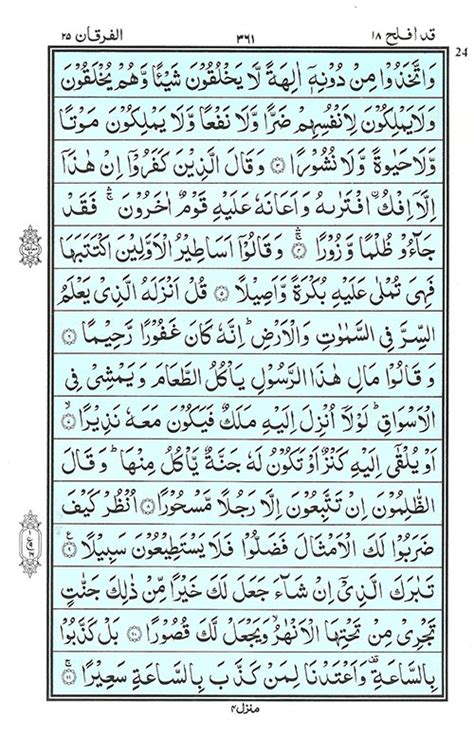 قد افلح ١٨ ٣٦١ الفرقان ٢٥
24
وَاتَّخَذُوْا مِنْ دُوْنِهٖۤ اٰلِهَةً لَّا يَخْلُقُوْنَ شَيْـًٔا وَّهُمْ يُخْلَقُوْنَ
وَلَا يَمْلِكُوْنَ لِاَنْفُسِهِمْ ضَرًّا وَّلَا نَفْعًا وَّلَا يَمْلِكُوْنَ مَوْتًا
وَّلَا حَيٰوةً وَّلَا نُشُوْرًا ۝٣ وَقَالَ الَّذِيْنَ كَفَرُوْۤا اِنْ هٰذَاۤ
اِلَّاۤ اِفْكُ ۨافْتَرٰىهُ وَاَعَانَهٗ عَلَيْهِ قَوْمٌ اٰخَرُوْنَ ۛۚ فَقَدْ
جَآءُوْ ظُلْمًا وَّزُوْرًا ۝٤ وَقَالُوْۤا اَسَاطِيْرُ الْاَوَّلِيْنَ اكْتَتَبَهَا
فَهِىَ تُمْلٰى عَلَيْهِ بُكْرَةً وَّاَصِيْلًا ۝٥ قُلْ اَنْزَلَهُ الَّذِىْ يَعْلَمُ
السِّرَّ فِى السَّمٰوٰتِ وَالْاَرْضِ ؕ اِنَّهٗ كَانَ غَفُوْرًا رَّحِيْمًا ۝٦
وَقَالُوْا مَالِ هٰذَا الرَّسُوْلِ يَاْكُلُ الطَّعَامَ وَيَمْشِىْ فِى
الْاَسْوَاقِ ؕ لَوْلَاۤ اُنْزِلَ اِلَيْهِ مَلَكٌ فَيَكُوْنَ مَعَهٗ نَذِيْرًا ۝٧
اَوْ يُلْقٰۤى اِلَيْهِ كَنْزٌ اَوْ تَكُوْنُ لَهٗ جَنَّةٌ يَّاْكُلُ مِنْهَا ؕ وَقَالَ
الظّٰلِمُوْنَ اِنْ تَتَّبِعُوْنَ اِلَّا رَجُلًا مَّسْحُوْرًا ۝٨ اُنْظُرْ كَيْفَ
ضَرَبُوْا لَكَ الْاَمْثَالَ فَضَلُّوْا فَلَا يَسْتَطِيْعُوْنَ سَبِيْلًا ۝٩
تَبٰرَكَ الَّذِىْۤ اِنْ شَآءَ جَعَلَ لَكَ خَيْرًا مِّنْ ذٰلِكَ جَنّٰتٍ
تَجْرِىْ مِنْ تَحْتِهَا الْاَنْهٰرُ ۙ وَيَجْعَلْ لَّكَ قُصُوْرًا ۝١٠ بَلْ كَذَّبُوْا
بِالسَّاعَةِ ۟ وَاَعْتَدْنَا لِمَنْ كَذَّبَ بِالسَّاعَةِ سَعِيْرًا ۝١١
منزل ٤